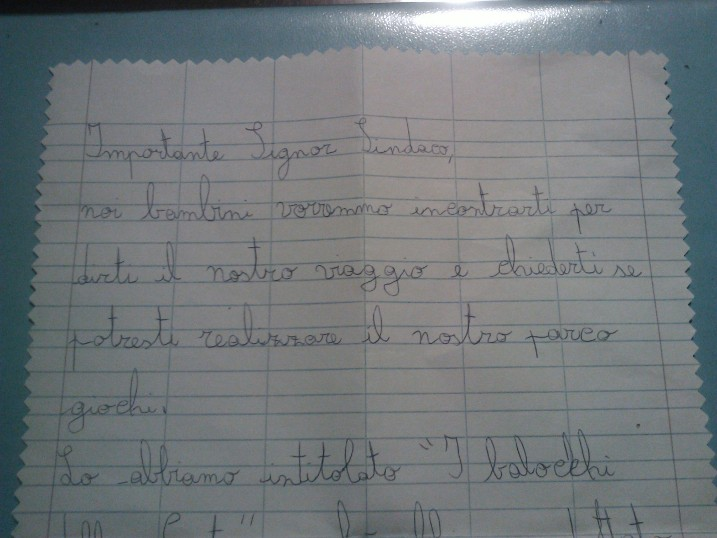 Importante Signor Sindaco,
noi bambini vorremmo incontrarti per
dirti il nostro viaggio e chiederti se
potresti realizzare il nostro parco
giochi.
Lo abbiamo intitolato "I balocchi